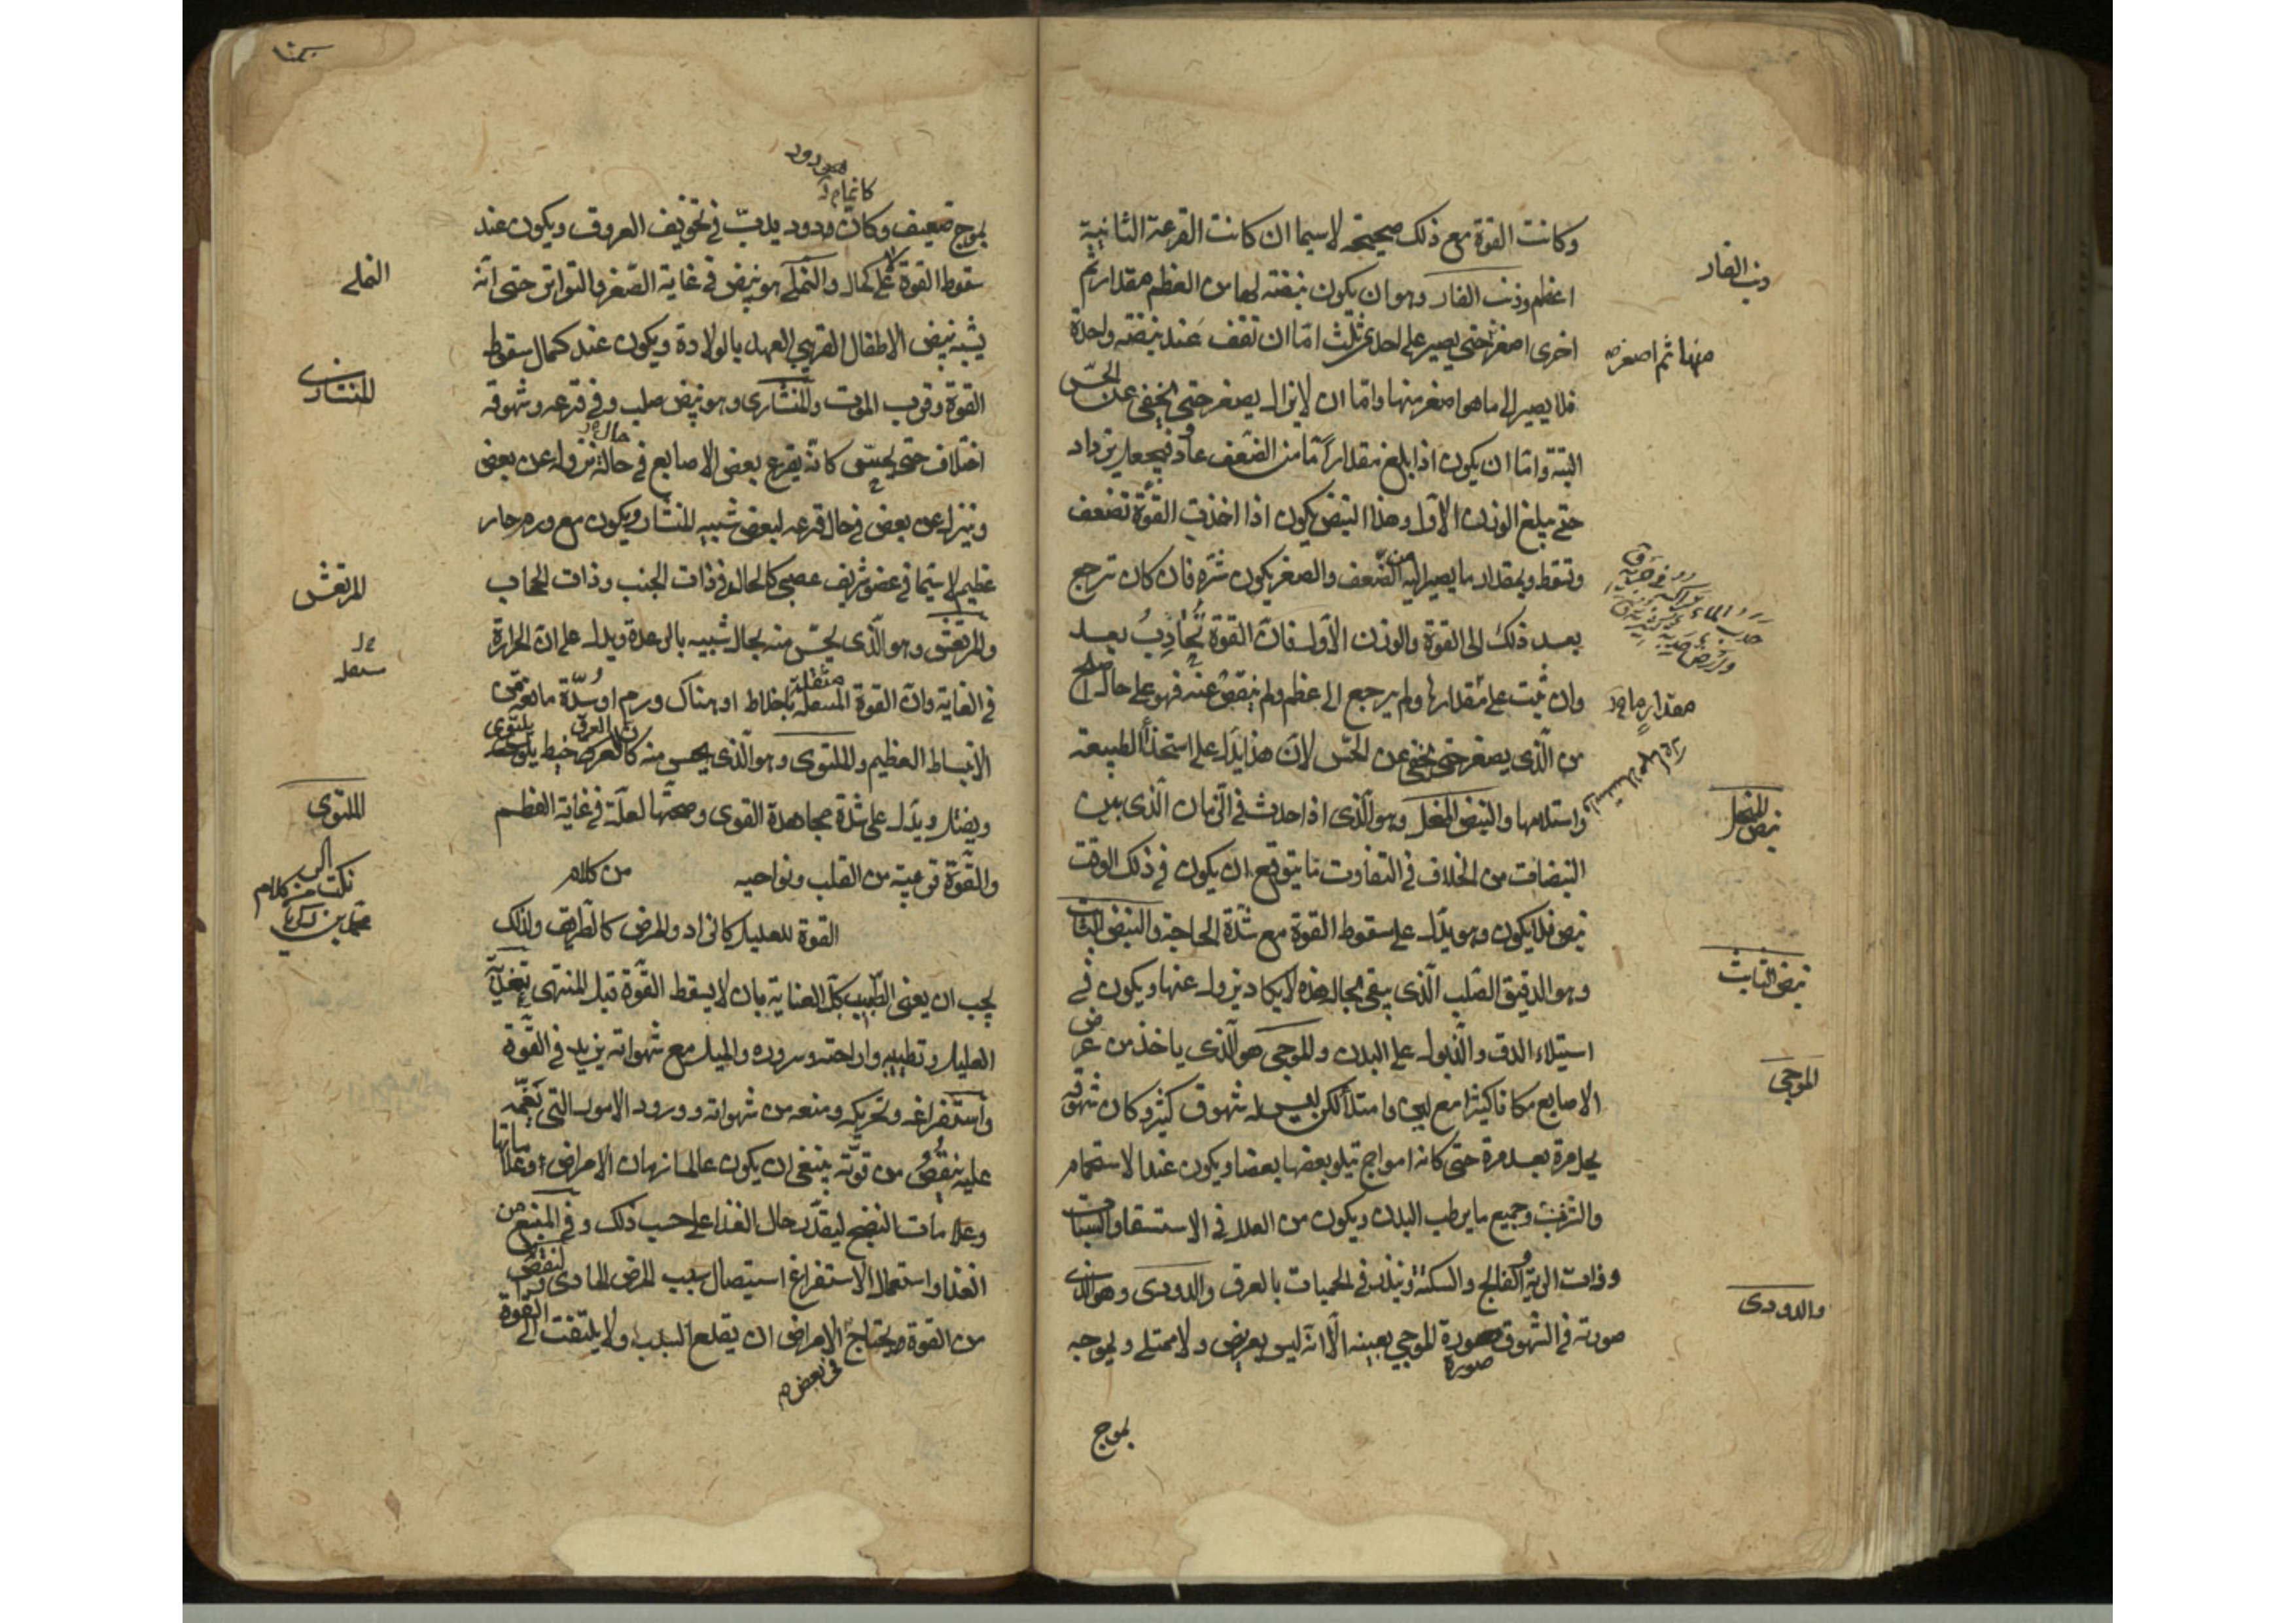 وكانت القوة مع ذلك صحيحة لاسيما ان كانت القرعة الثانية
اعظم وذنب الفار وهو ان يكون نبضته لها من العظم مقدار ثم
اخرى اصغر حتى يصير على احدى ثلث اما ان تقف عند نبضة واحدة
فلا يصير الى ما هو اصغر منها واما ان لا يزال يصغر حتى يخفى عن الحس
البتة واما ان يكون اذا بلغ مقدارا ما من الضعف عاد فيجعل يزداد
حتى يبلغ الوزن الاول وهذا النبض يكون اذا اخذت القوة تضعف
وتسقط وبمقدار ما يصير اليه من الضعف والصغر يكون شره فان كان ترجع
بعد ذلك الى القوة والوزن الاول فان القوة تجاذب بعد
وان ثبت على مقدارها ولم يرجع الى عظم ولم ينقص عنه فهو على حال اصلح
من الذي يصغر حتى يخفى عن الحس لان هذا يدل على استخذأ الطبيعة
واستلامها والنبض المنحل وهو الذي اذا حدث في الزمان الذي بين
النبضات من الخلاف في التفاوت ما يتوقع ان يكون في ذلك الوقت
نبض فلا يكون وهو يدل على سقوط القوة مع شدة الحاجة والنبض الثابت
وهو الدقيق الصلب الذي يبقى بحاله هذه لا يكاد يزول عنها ويكون في
استيلاء الدق والذبول على البدن والموجي هو الذي ياخذ من عرض
الاصابع مكانا كثيرا مع لين وامتلأ لكن ليس له شهوق كثير وكان شهوقه
يجل مرة بعد مرة حتى كانه امواج يتلو بعضها بعضا ويكون عند الاستحمام
والشرب وجميع ما يرطب البدن ويكون من العلل في الاستسقا والسبات
وذات الرية والفالج والسكتة وينذر في الحميات بالعرق والدودي وهو الذي
صورته في الشهوق صورة الموجي بعينه الا انه ليس بعريض ولا ممتلي وتموجه
صورة
بموج
ذنب الفار
منها ثم اصغر
مقدار ما
نبض المنحل
نبض الثابت
الموجى
والدودى
كانما
بموج ضعيف وكان دود يدب في تجويف العروق ويكون عند
سقوط القوة لا على كمال والنملي هو نبض في غاية الصغر والتواتر حتى انه
يشبه نبض الاطفال القريبي العهد بالولادة ويكون عند كمال سقوط
القوة وقرب الموت والمنشاري وهو نبض صلب وفي قرعه وشهوقه
اختلاف حتى يحس كانه يقرع بعض الاصابع في حالة نزوله عن بعض
وينزل عن بعض في حال قرعه لبعض شبيه المنشار ويكون مع ورم حار
عظيم لاسيما في عضو شريف عصبي كالحال في ذات الجنب وذات الحجاب
والمرتعش وهو الذي يحس منه بحال شبيه بالرعدة ويدل على ان الحرارة
في الغاية وان القوة مثقلة باخلاط او هناك ورم او سدة مانعة من
الانبساط العظيم والملتوي وهو الذي يحس منه كان العرق خيط يلتوي
ويفتل ويدل على شدة مجاهدة القوى وصحتها لعلة في غاية العظم
والقوة قوية من القلب ونواحيه من كلام
القوة للعليل كالزاد والمرض كالطريق ولذلك
يجب ان يعنى الطبيب كل العناية بان لا يسقط القوة قبل المنتهى
العليل وتطييبه واراحته وسروره والميل مع شهواته يزيد في القوة
واستفراغه وتحريكه ومنعه من شهواته وورود الامور التي تغمه
عليه ينقص من قوته ينبغي ان يكون عالما بازمان الامراض وعلاماتها
وعلامات النضج ليقدر حال الغذا على حسب ذلك وفي المنع من
الغذا واستعمال الاستفراغ استيصال سبب المرض المادي ونقص
من القوة ويحتاج الامراض ان يقلع السبب ولا يلتفت الى القوة
في بعض
النملى
المنشارى
المرتعش
الملتوى
نكت من كلام
محمد بن زكريا